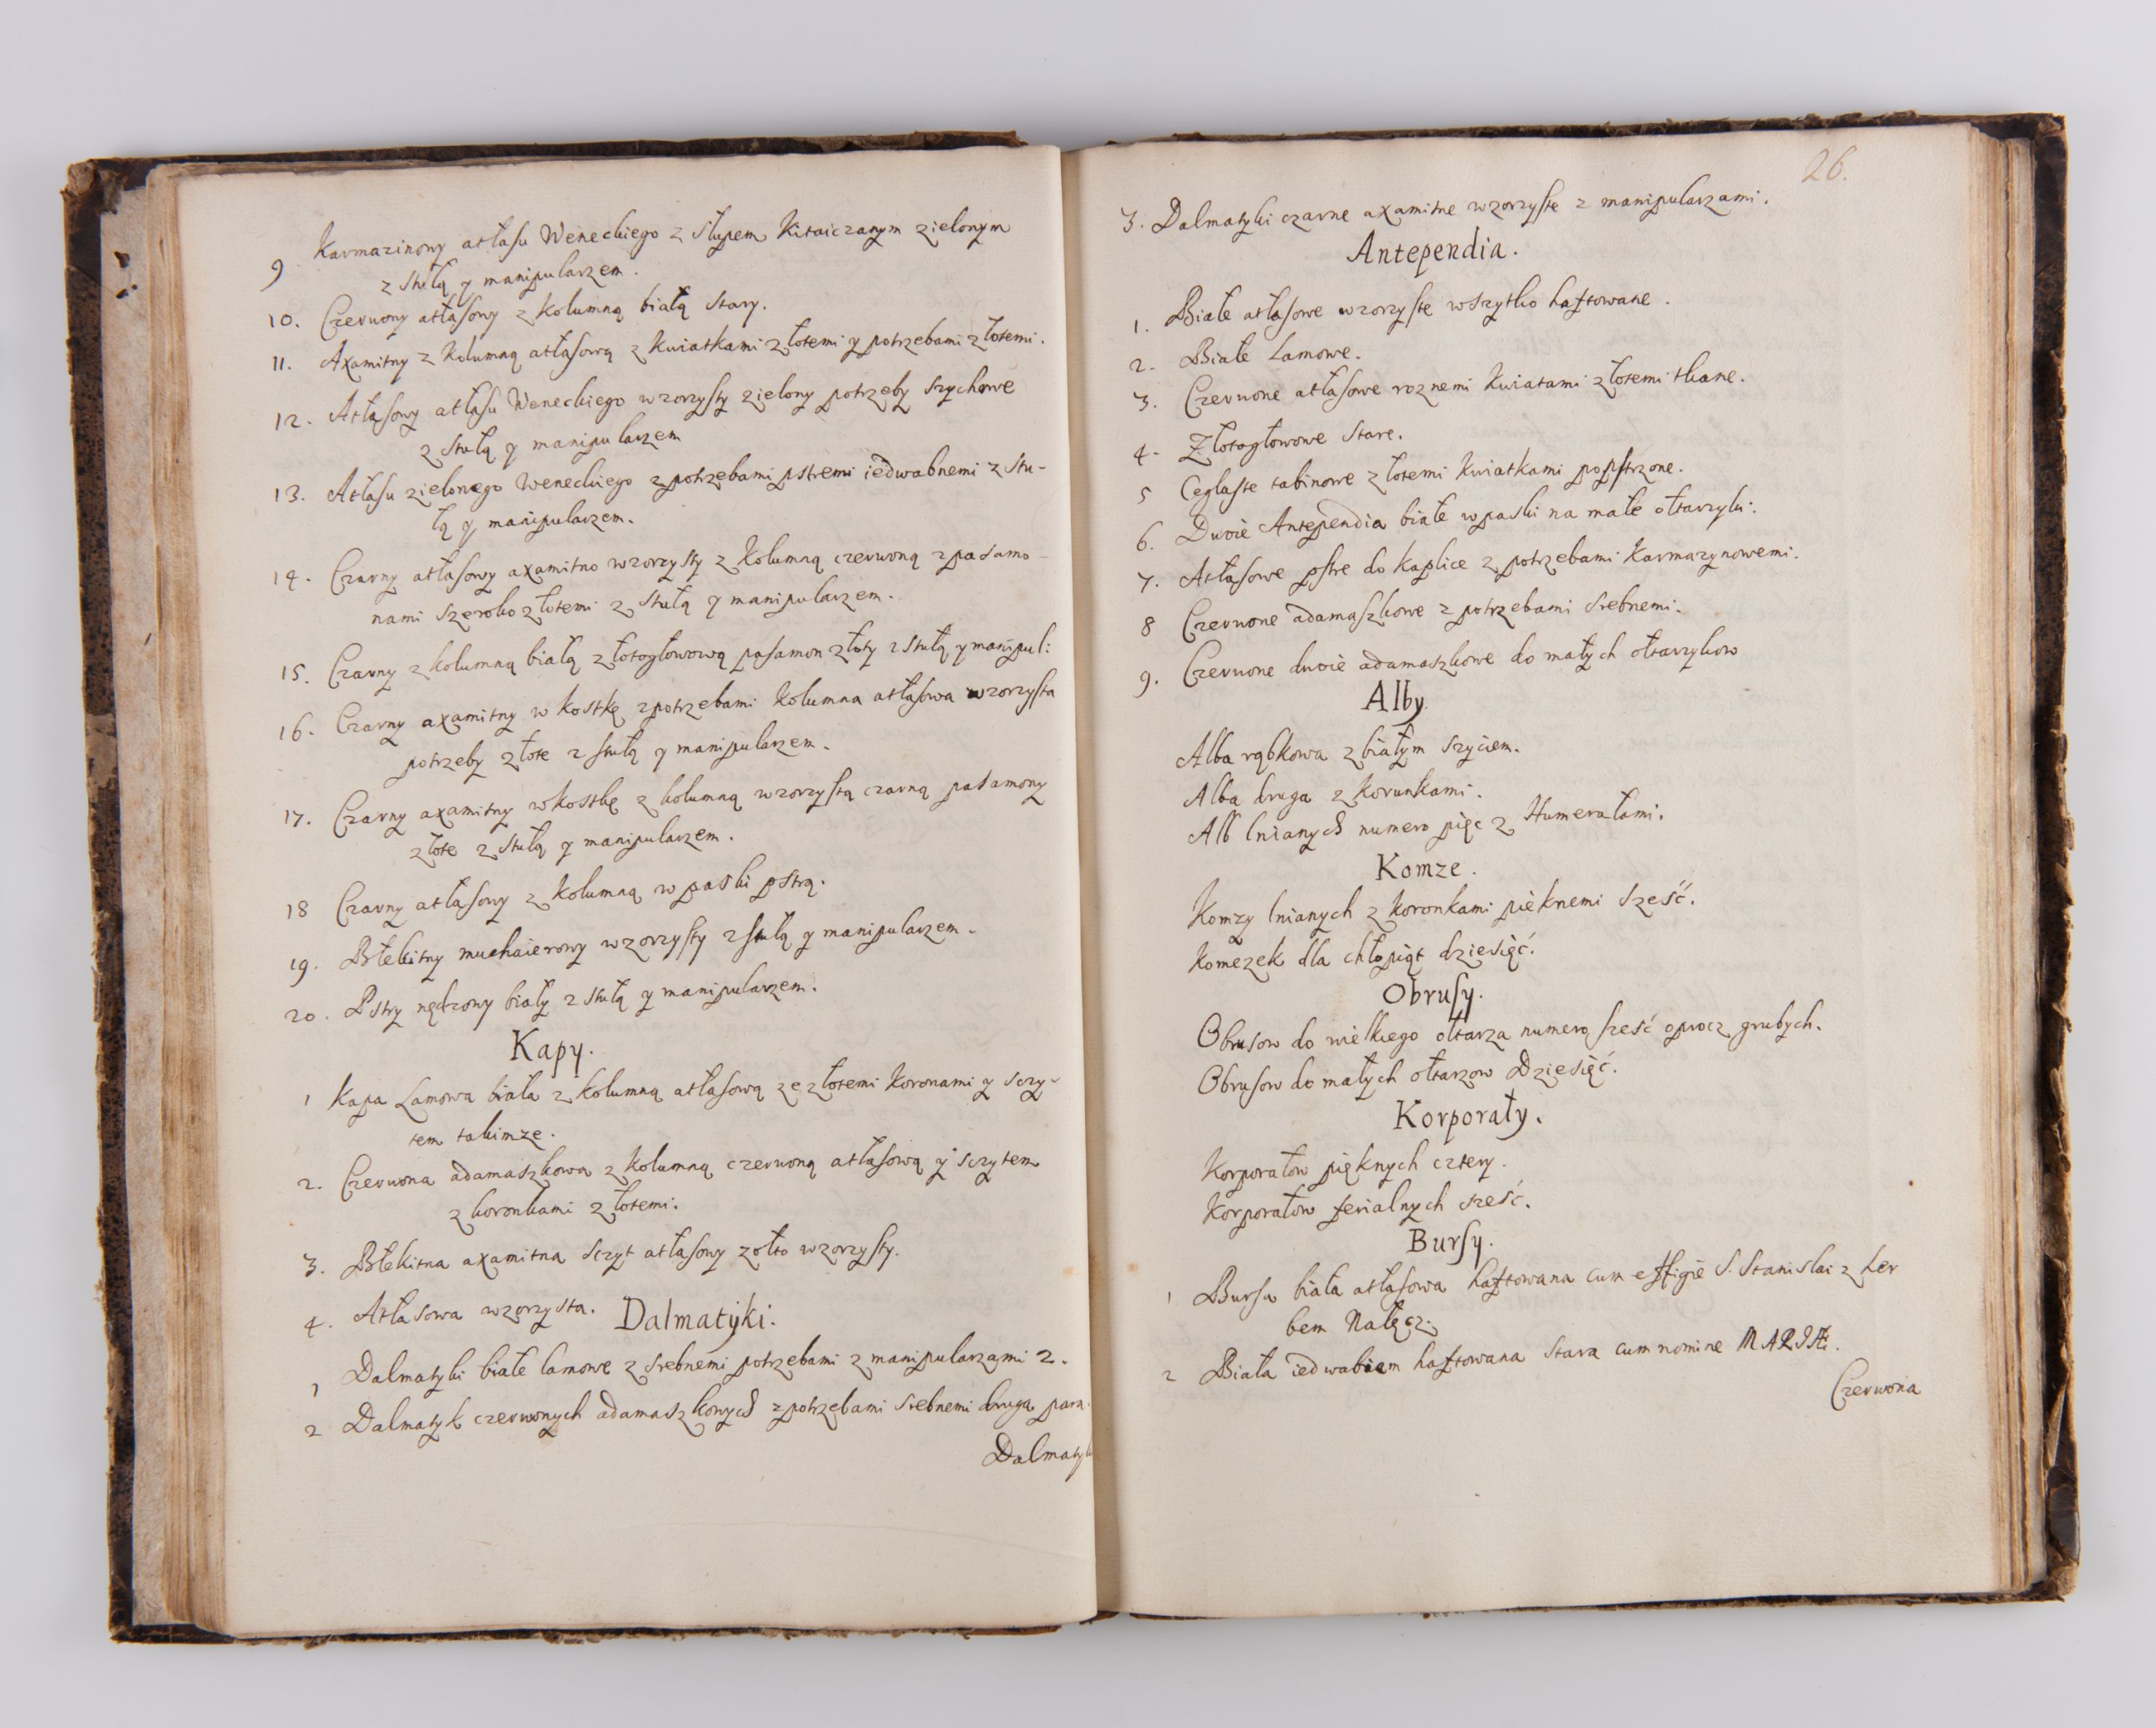 9 Karmazinowy atłasu Weneckiego z słupem Kitaiczanym zielonym
z stułą y manipularzem.
10. Czerwony atłasowy z kolumną białą stary.
11. Axamitny z kolumną atłasową z kwiatkami złotemi y potrzebami złotemi.
12. Atłasowy atłasu Weneckiego wzorzysty zielony potrzeby szychowe
z stułą y manipularzem
13. Atłasu zielonego Weneckiego z potrzebami pstremi iedwabnemi z stu-
łą y manipularzem.
14. Czarny atłasowy axamitno wzorzysty z kolumną czerwoną z pasamo-
nami szeroko złotemi z stułą y manipularzem.
15. Czarny z kolumną białą złotogłowową pasamon złoty z stułą y manipul:
16. Czarny axamitny w kostkę z potrzebami kolumna atłasowa wzorzysta
potrzeby złote z stułą y manipularzem.
17. Czarny axamitny w kostkę z kolumną wzorzystą czarną pasamony
złote z stułą y manipularzem.
18 Czarny atłasowy z kolumną w paski pstrą.
19. Błekitny muchaierowy wzorzysty z stułą y manipularzem.
20. Pstry nędzowy biały z stułą y manipularzem.
Kapy.
1 Kapa Lamowa biała z kolumną atłasową ze złotemi koronami y sczy-
tem takimze.
2. Czerwona adamaszkowa z kolumną czerwoną atłasową y sczytem
z koronkami złotemi.
3. Błekitna axamitna sczyt atłasowy zołto wzorzysty.
4. Atłasowa wzorzysta.
Dalmatyki.
1 Dalmatyki białe lamowe z srebnemi potrzebami z manipularzami 2.
2 Dalmatyk czerwonych adamaszkowych z potrzebami srebnemi druga para.
Dalmatyk
26.
3. Dalmatyki czarne axamitne wzorzyste z manipularzami.
Antependia.
1. Białe atłasowe wzorzyste wszytko haftowane.
2. Białe Lamowe.
3. Czerwone atłasowe roznemi kwiatami złotemi tkane.
4. Złotogłowowe stare.
5 Ceglaste tabinowe złotemi kwiatkami popstrzone.
6. Dwoie Antependia białe w paski na małe ołtarzyki.
7. Atłasowe pstre do kaplice z potrzebami karmazynowemi.
8 Czerwone adamaszkowe z potrzebami srebnemi.
9. Czerwone dwoie adamaszkowe do małych ołtarzykow
Alby.
Alba rąbkowa z białym szyciem.
Alba druga z korunkami.
Alb lnianych numero pięc z Humerałami.
Komze.
Komzy lnianych z koronkami pieknemi sześć.
Komezek dla chłopiąt dziesięć.
Obrusy.
Obrusow do wielkiego ołtarza numero sześć oprocz grubych.
Obrusow do małych ołtarzow Dziesięć.
Korporały.
Korporałow pięknych cztery.
Korporałow ferialnych sześć.
Bursy.
1 Bursa biała atłasowa haftowana cum effigie S. Stanislai z her
bem Nałęcz.
2 Biała iedwabiem haftowana stara cum nomine MARIÆ.
Czerwona